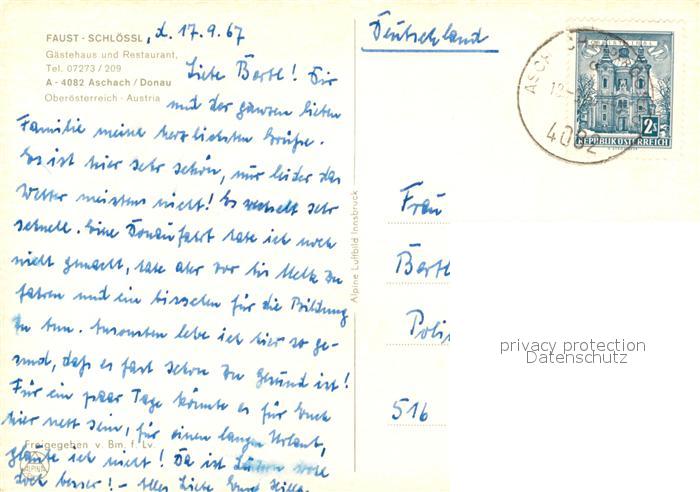 FAUST - SCHLÖSSL, d. 17.9.67
Gästehaus und Restaurant,
Tel. 07273 / 209
A - 4082 Aschach / Donau
Oberösterreich - Austria
Liebe Bertl! Dir
und der ganzen lieben
Familie meine herzlichsten Grüße.
Es ist hier sehr schön, nur leider das
Wetter meistens nicht! Es wechselt sehr
schnell. Eine Donaufahrt habe ich noch
nicht gemacht, habe aber vor bis Melk zu
fahren und ein bisschen für die Bildung
zu tun. Ansonsten lebe ich hier so ge-
sund, daß es fast schon zu gesund ist!
Für ein paar Tage könnte es für Euch
hier nett sein, für einen langen Urlaub,
glaube ich nicht! Da ist
doch besser! - Alles Liebe Eure
Freigegeben v. Bm. f. Lv.
ALPINE
Alpine Luftbild Innsbruck
Deutschland
4082
2S
REPUBLIK ÖSTERREICH
Frau
Bertl
Poli
516
privacy protection
Datenschutz